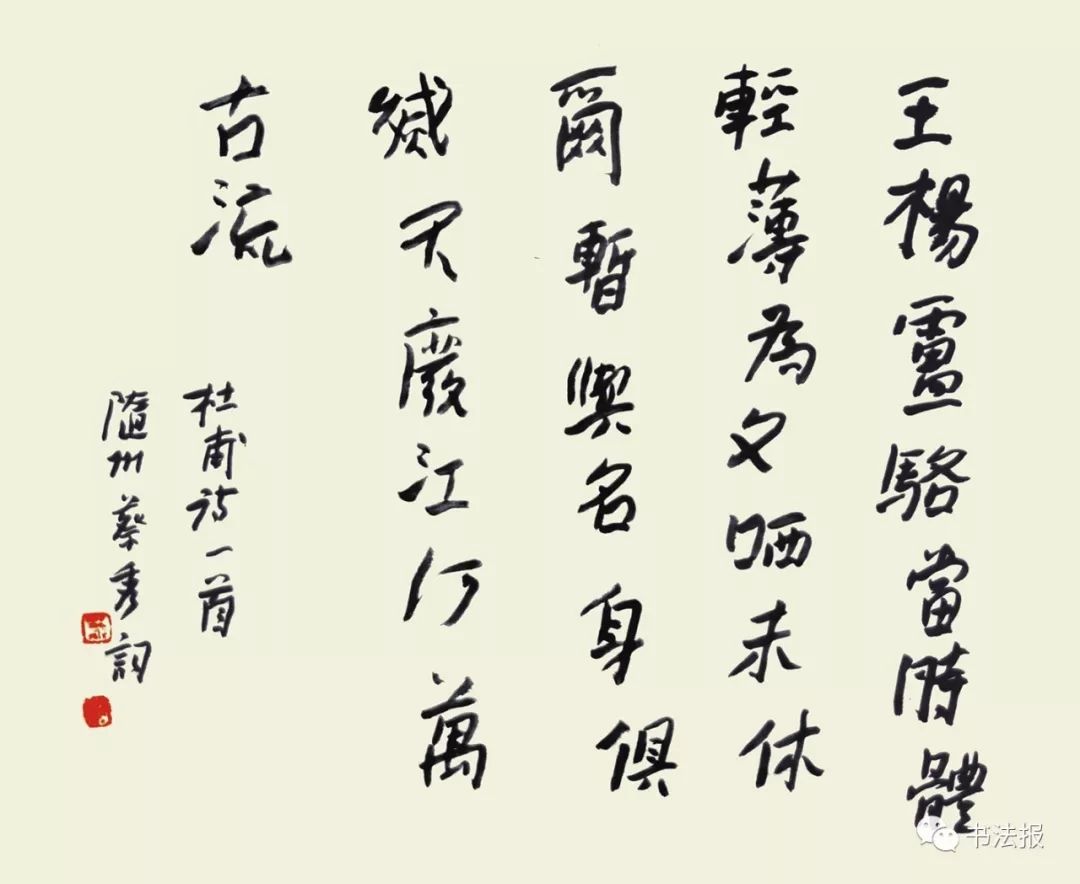 王楊盧駱當時體
輕薄為文哂未休
爾暫與名身俱
滅不廢江河萬
古流
杜甫诗一首
隨州蔡秀詞
书法报